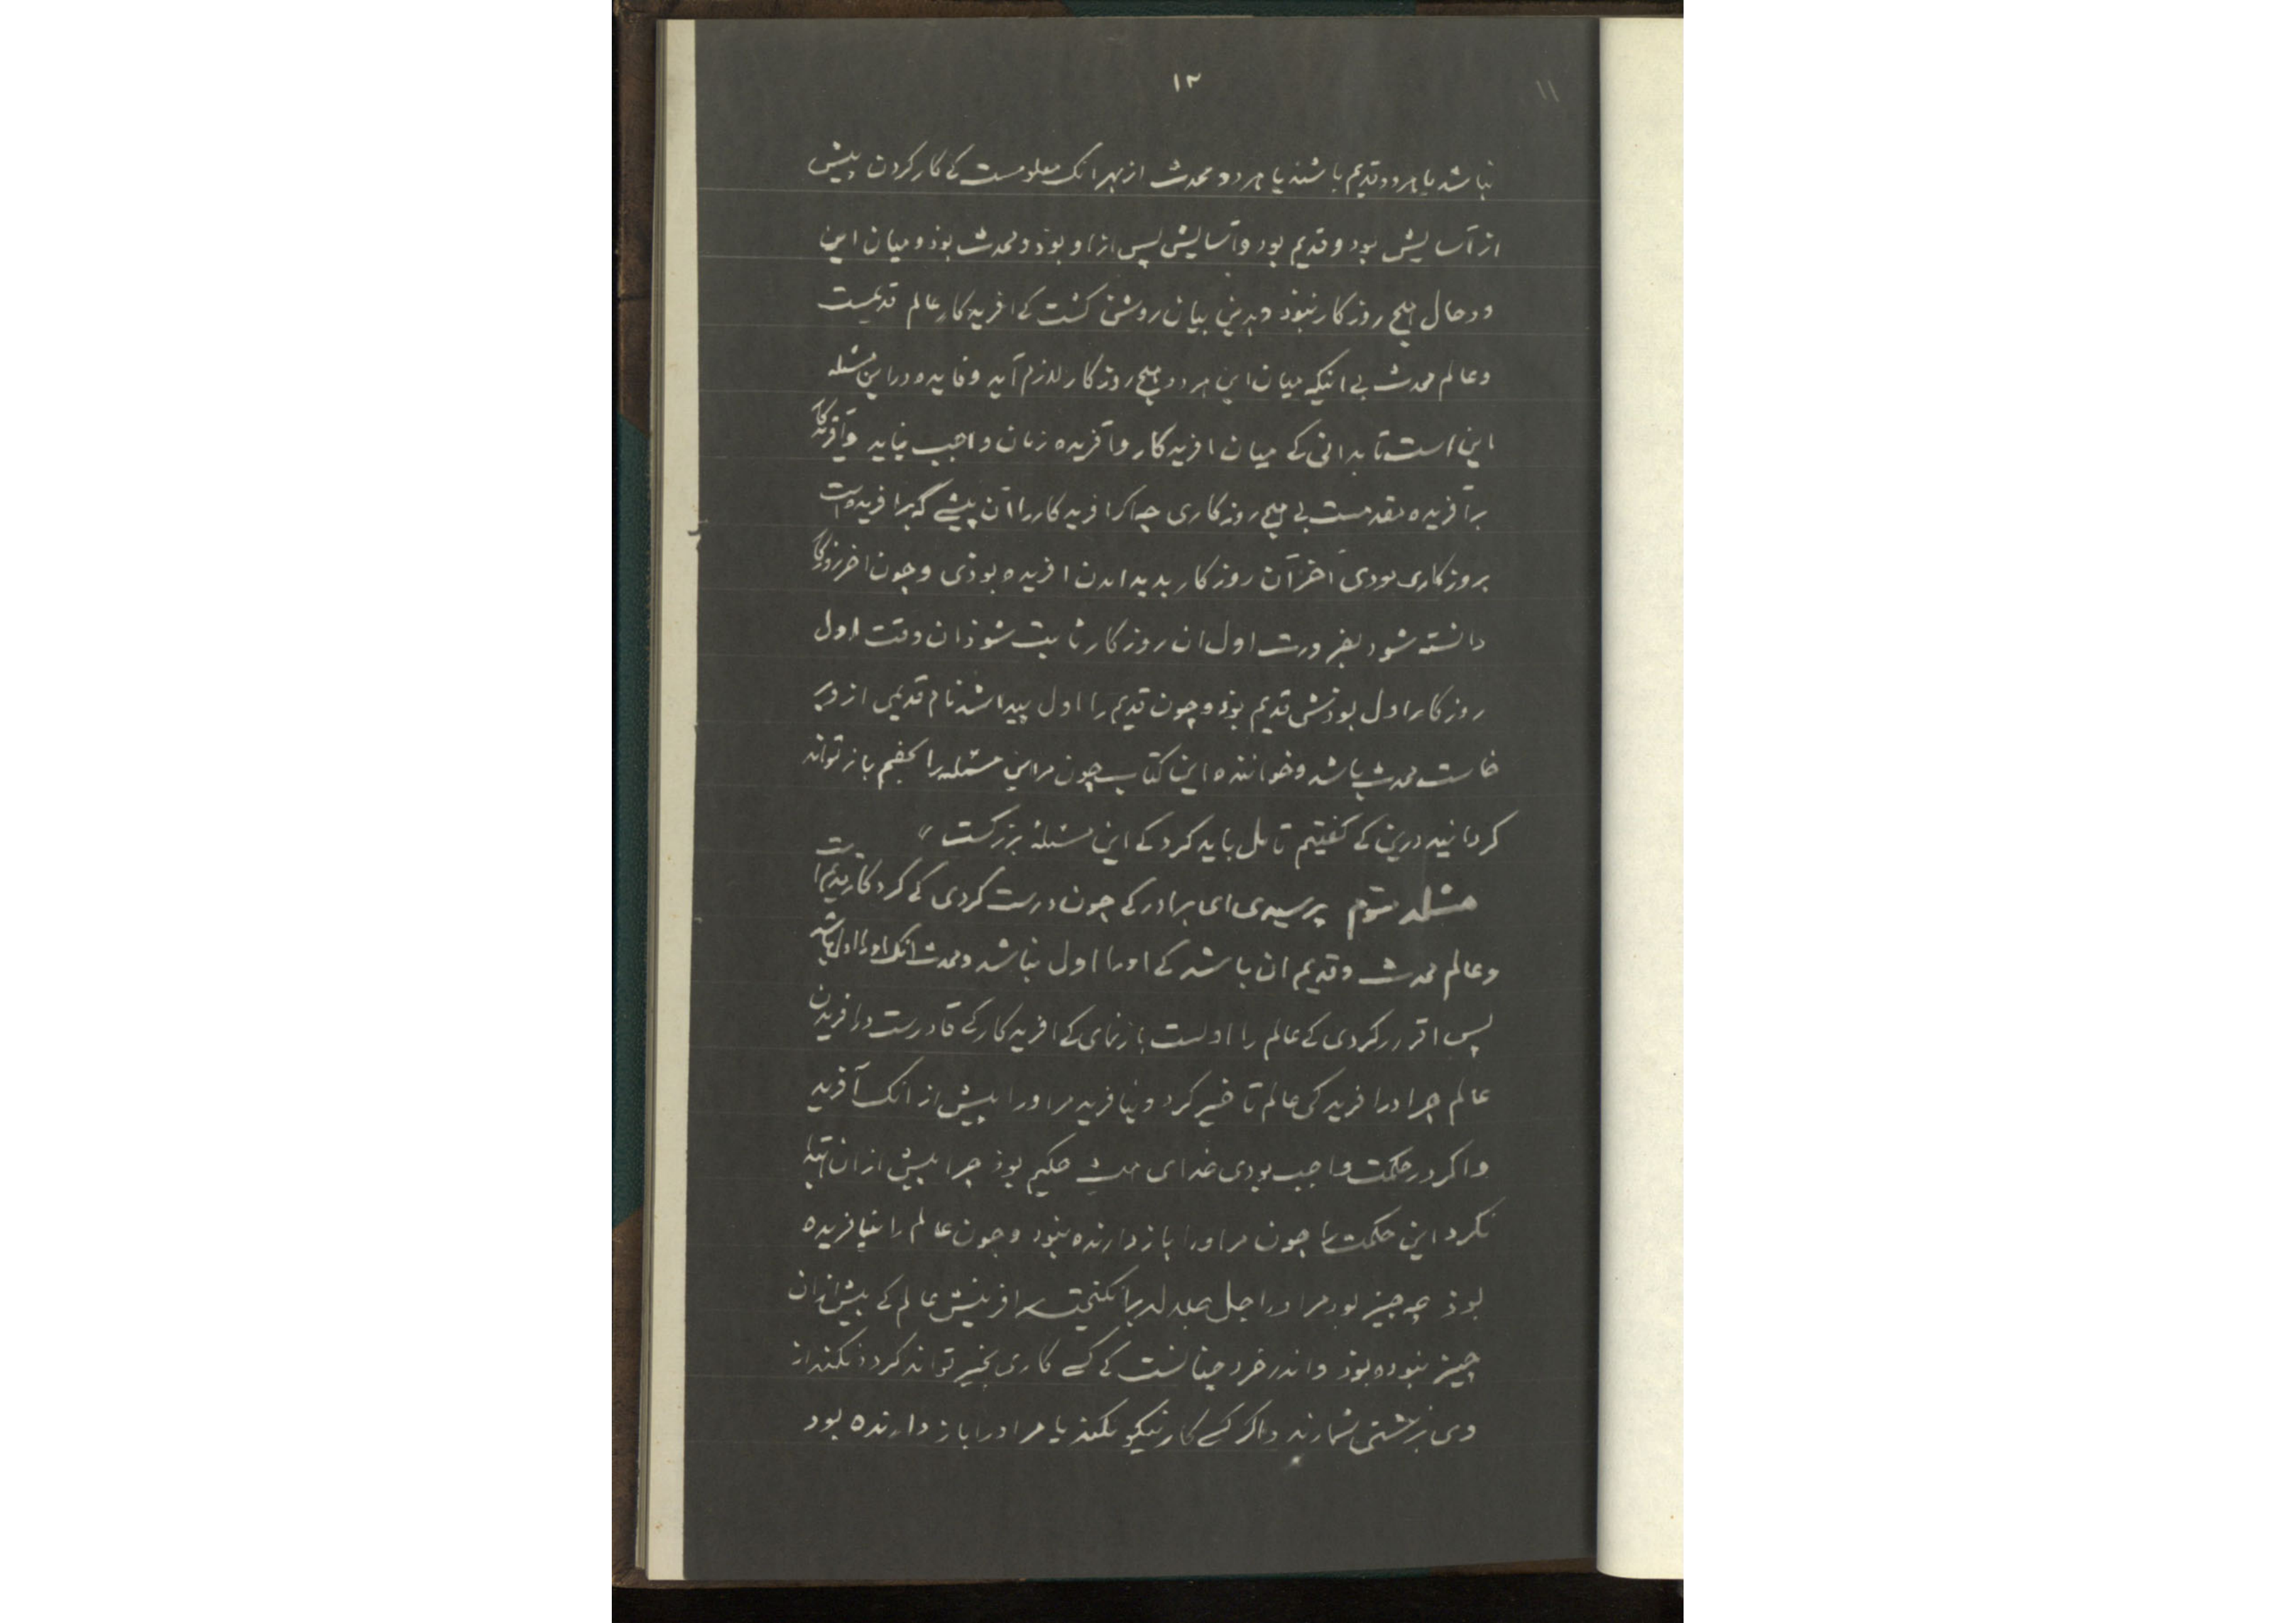 ۱۲
۱۱
نباشد یا هر دو قدیم باشند یا هر دو محدث از بهر انک معلومست کی کار کردن پیش
از آسایش بود و قدیم بود و آسایش پس از او بوذ و محدث بوذ و میان این
دو حال هیچ روزکار نبوذ و بدین بیان روشن کشت کی افریدکار عالم قدیمست
و عالم محدث بی انیکه میان این هر دو هیچ روزکار لازم آید و فایده در این مسئله
این است تا بدانی کی میان افریدکار و آفریده زمان واجب نیاید و آفریدکار
بر آفریده مقدمست بی هیچ روزکاری چه اکر افریدکار را آن پیشی که بر افریده است
بروزکاری بودی آخر آن روزکار پدید امدن افریده بوذی و چون اخر روزکار
دانسته شود بضرورت اول ان روزکار ثابت شوذ ان وقت اول
روزکار اول بوذش قدیم بوذ و چون قدیم را اول پیدا شد نام قدیمی از وی بر
خاست محدث باشد و خواننده این کتاب چون مر این مسئله را بخصم باز تواند
کردانید درین کی کفتیم تامل باید کرد کی این مسئلهٔ بزرکست "
مسئله سوم پرسیدی ای برادر کی چون درست کردی کی کردکار قدیم است
و عالم محدث و قدیم ان باشد کی اورا اول نباشد و محدث انک اورا اول باشد
پس اقرر کردی کی عالم را اولست باز نمای کی افریدکار کی قادرست در افریدن
عالم چرا در افرید کی عالم تاخیر کرد و نیافرید مر اورا پیش از انک آفرید
و اکر در حکمت واجب بودی خدای همیشه حکیم بوذ چرا پیش از ان
نکرد این حکمت را چون مر اورا باز دارنده نبود و چون عالم را نیافریده
بوذ چه چیز بود مر اورا جل جلاله برانکیخت بر افرینش عالم کی پیش از ان
چیز نبوده بوذ و اندر خرد چنانست کی کسی کاری بخیر تواند کرد و نکند از
وی بزشتی شمارند و اکر کسی کار نیکو نکند یا مر اورا باز دارنده بود